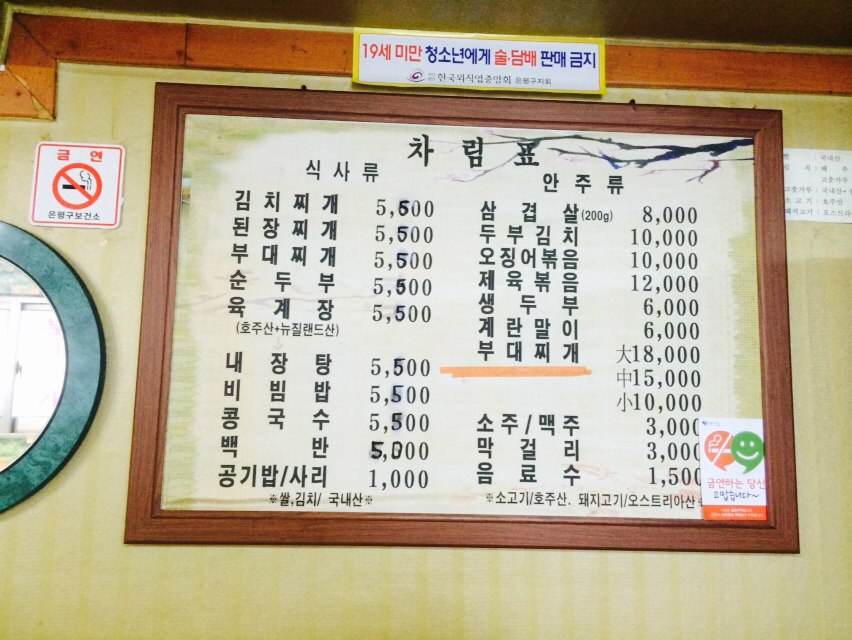 19세 미만 청소년에게 술·담배 판매 금지
한국외식업중앙회 은평구지회
금 연
은평구보건소
차 림 표
식 사 류
김 치 찌 개 5,500
된 장 찌 개 5,500
부 대 찌 개 5,500
순 두 부 5,500
육 계 장 5,500
(호주산+뉴질랜드산)
내 장 탕 5,500
비 빔 밥 5,500
콩 국 수 5,500
백 반 5,000
공기밥/사리 1,000
※쌀,김치/ 국내산※
안 주 류
삼 겹 살(200g) 8,000
두 부 김 치 10,000
오징어볶음 10,000
제 육 볶 음 12,000
생 두 부 6,000
계 란 말 이 6,000
부 대 찌 개 大18,000
中15,000
小10,000
소 주 / 맥 주 3,000
막 걸 리 3,000
음 료 수 1,500
※소고기/호주산. 돼지고기/오스트리아산
금연하는 당신
고맙습니다~
: 국내산
: 배추
고춧가루
고춧가루: 국내산
소 고 기 : 호주산
돼지고기: 오스트리